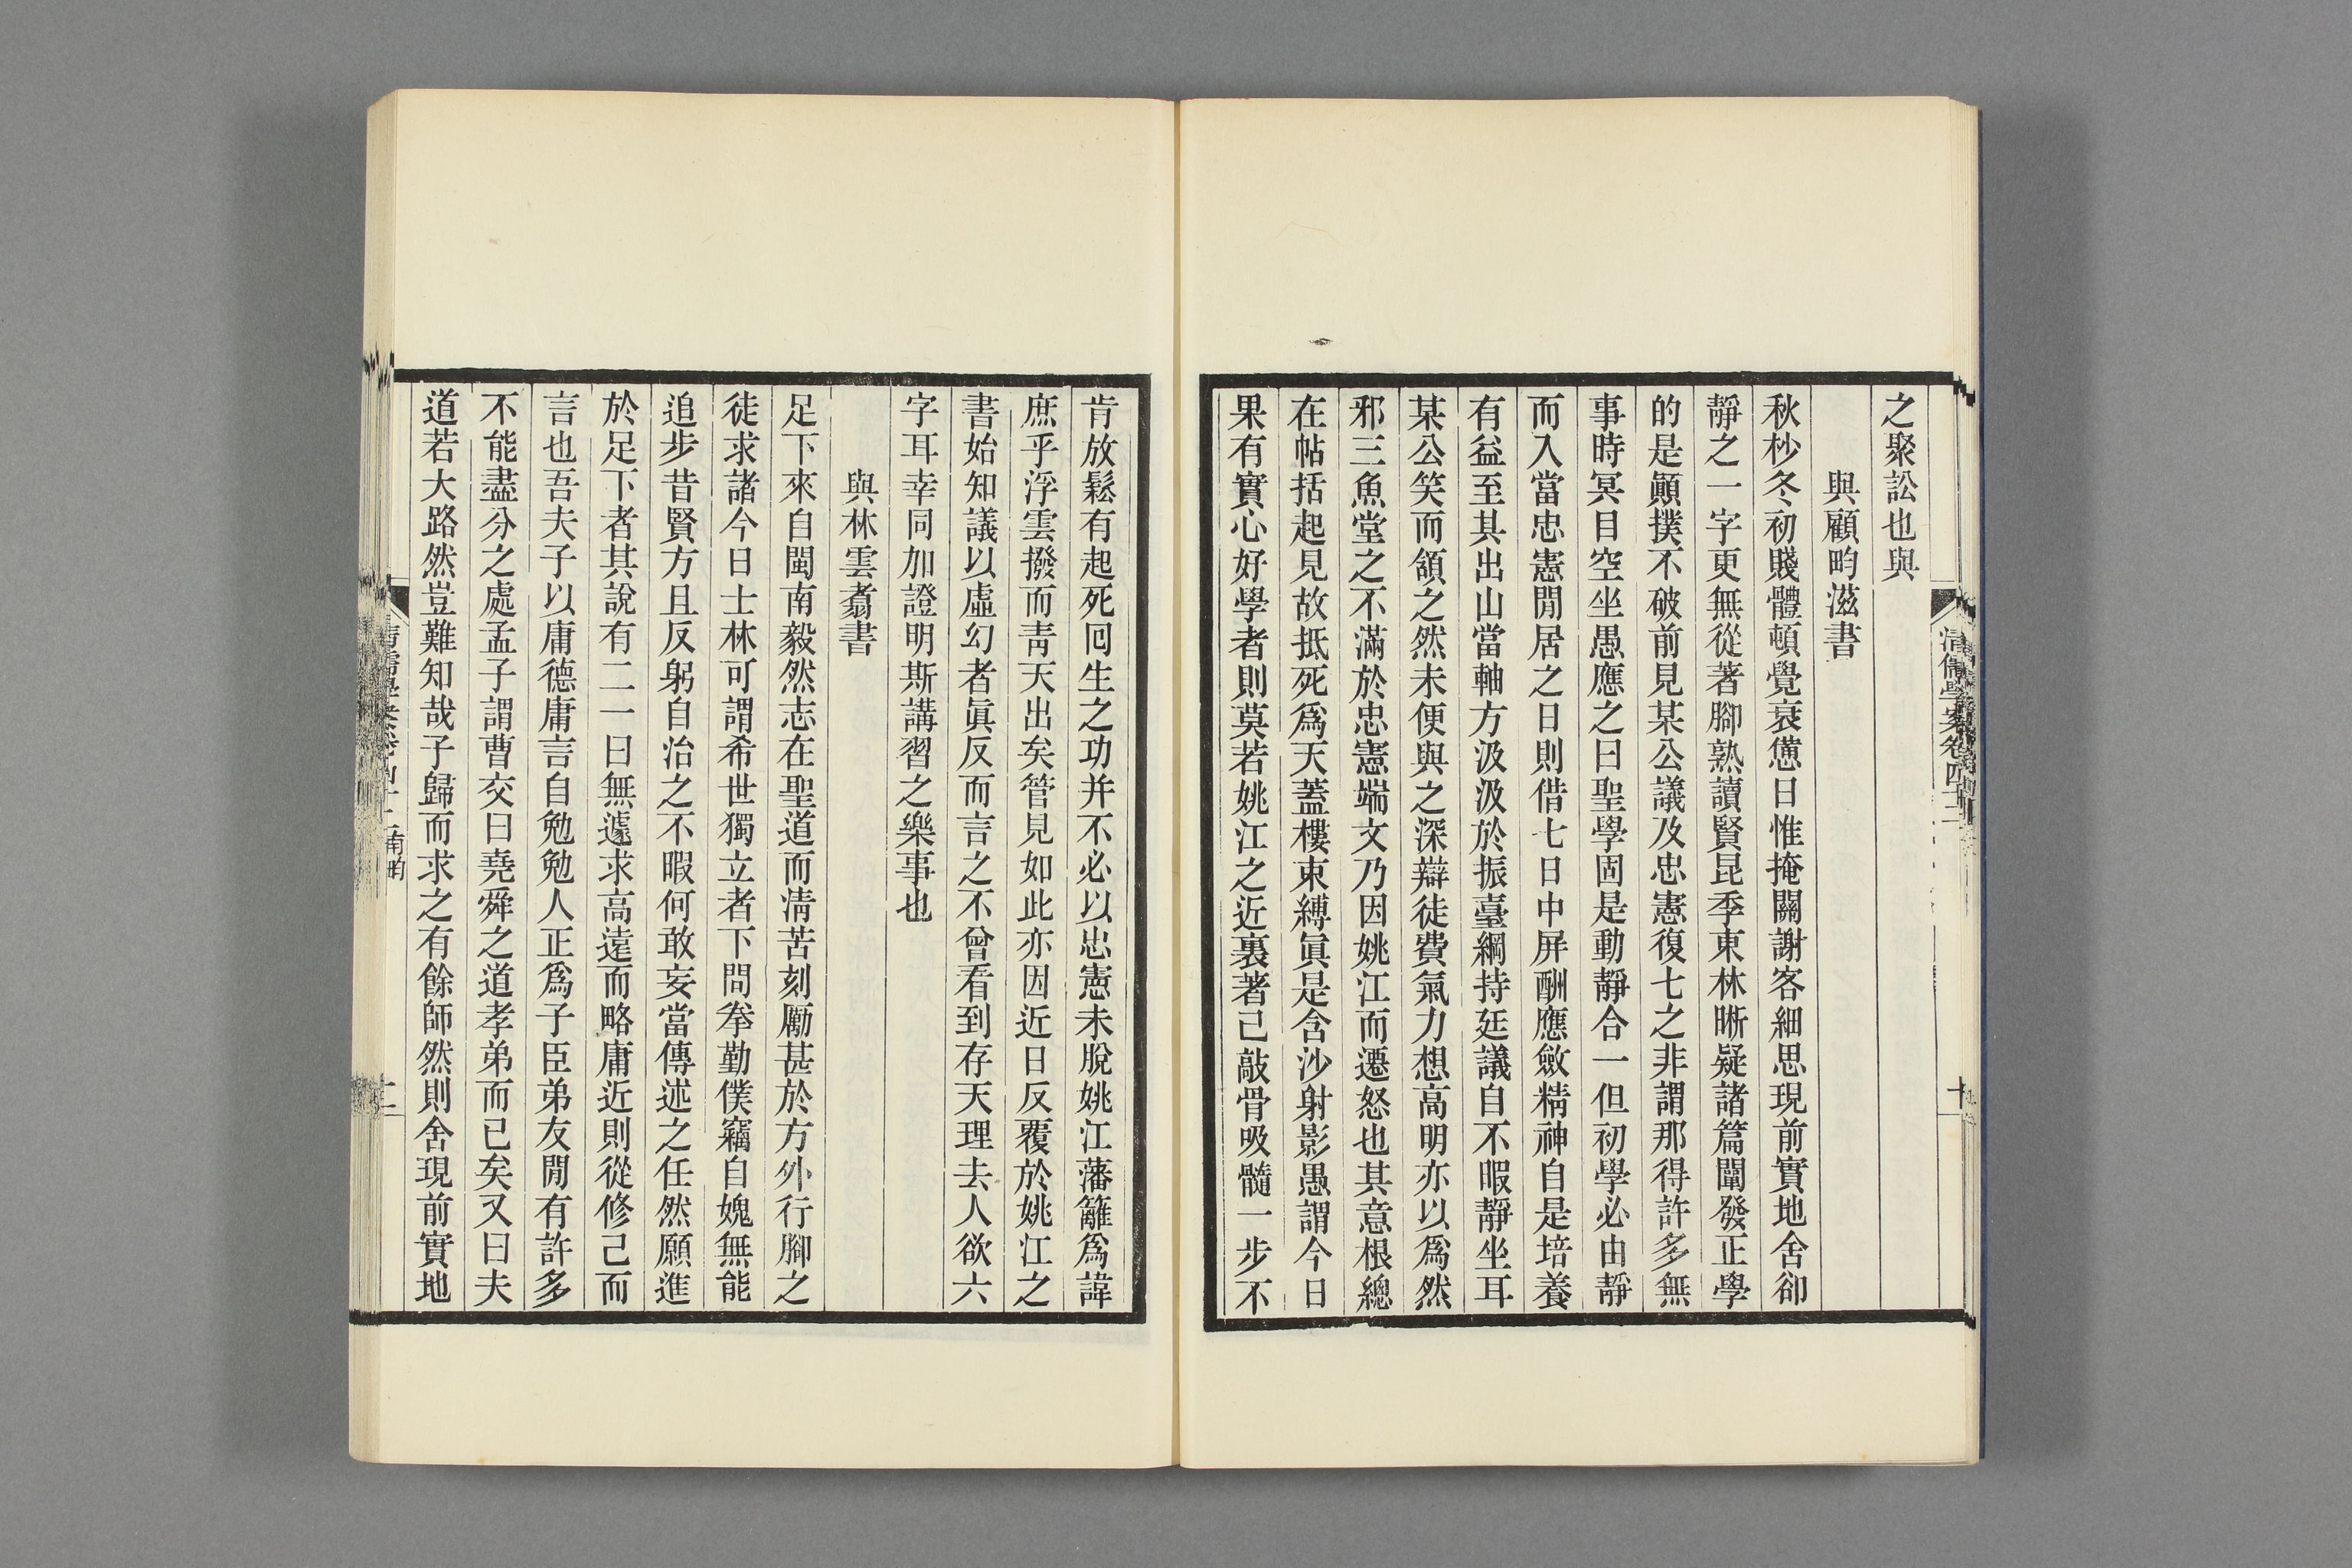 之聚訟也與
與顧畇滋書
秋杪冬初賤體頓覺衰憊日惟掩關謝客細思現前實地舍卻
靜之一字更無從著腳熟讀賢昆季東林晰疑諸篇闡發正學
的是顚撲不破前見某公議及忠憲復七之非謂那得許多無
事時冥目空坐愚應之曰聖學固是動靜合一但初學必由靜
而入當忠憲閒居之日則借七日中屏酬應斂精神自是培養
有益至其出山當軸方汲汲於振臺綱持廷議自不暇靜坐耳
某公笑而頷之然未便與之深辯徒費氣力想高明亦以爲然
邪三魚堂之不滿於忠憲端文乃因姚江而遷怒也其意根總
在帖括起見故抵死爲天蓋樓束縛眞是含沙射影愚謂今日
果有實心好學者則莫若姚江之近裏著己敲骨吸髓一步不
清儒學案卷四十二
肯放鬆有起死囘生之功并不必以忠憲未脫姚江藩籬爲諱
庶乎浮雲撥而靑天出矣管見如此亦因近日反覆於姚江之
書始知議以虛幻者眞反而言之不曾看到存天理去人欲六
字耳幸同加證明斯講習之樂事也
與林雲翥書
足下來自閩南毅然志在聖道而淸苦刻勵甚於方外行腳之
徒求諸今日士林可謂希世獨立者下問拳勤僕竊自媿無能
追步昔賢方且反躬自治之不暇何敢妄當傳述之任然願進
於足下者其說有二一曰無遽求高遠而略庸近則從修己而
言也吾夫子以庸德庸言自勉勉人正爲子臣弟友閒有許多
不能盡分之處孟子謂曹交曰堯舜之道孝弟而已矣又曰夫
道若大路然豈難知哉子歸而求之有餘師然則舍現前實地
南畇